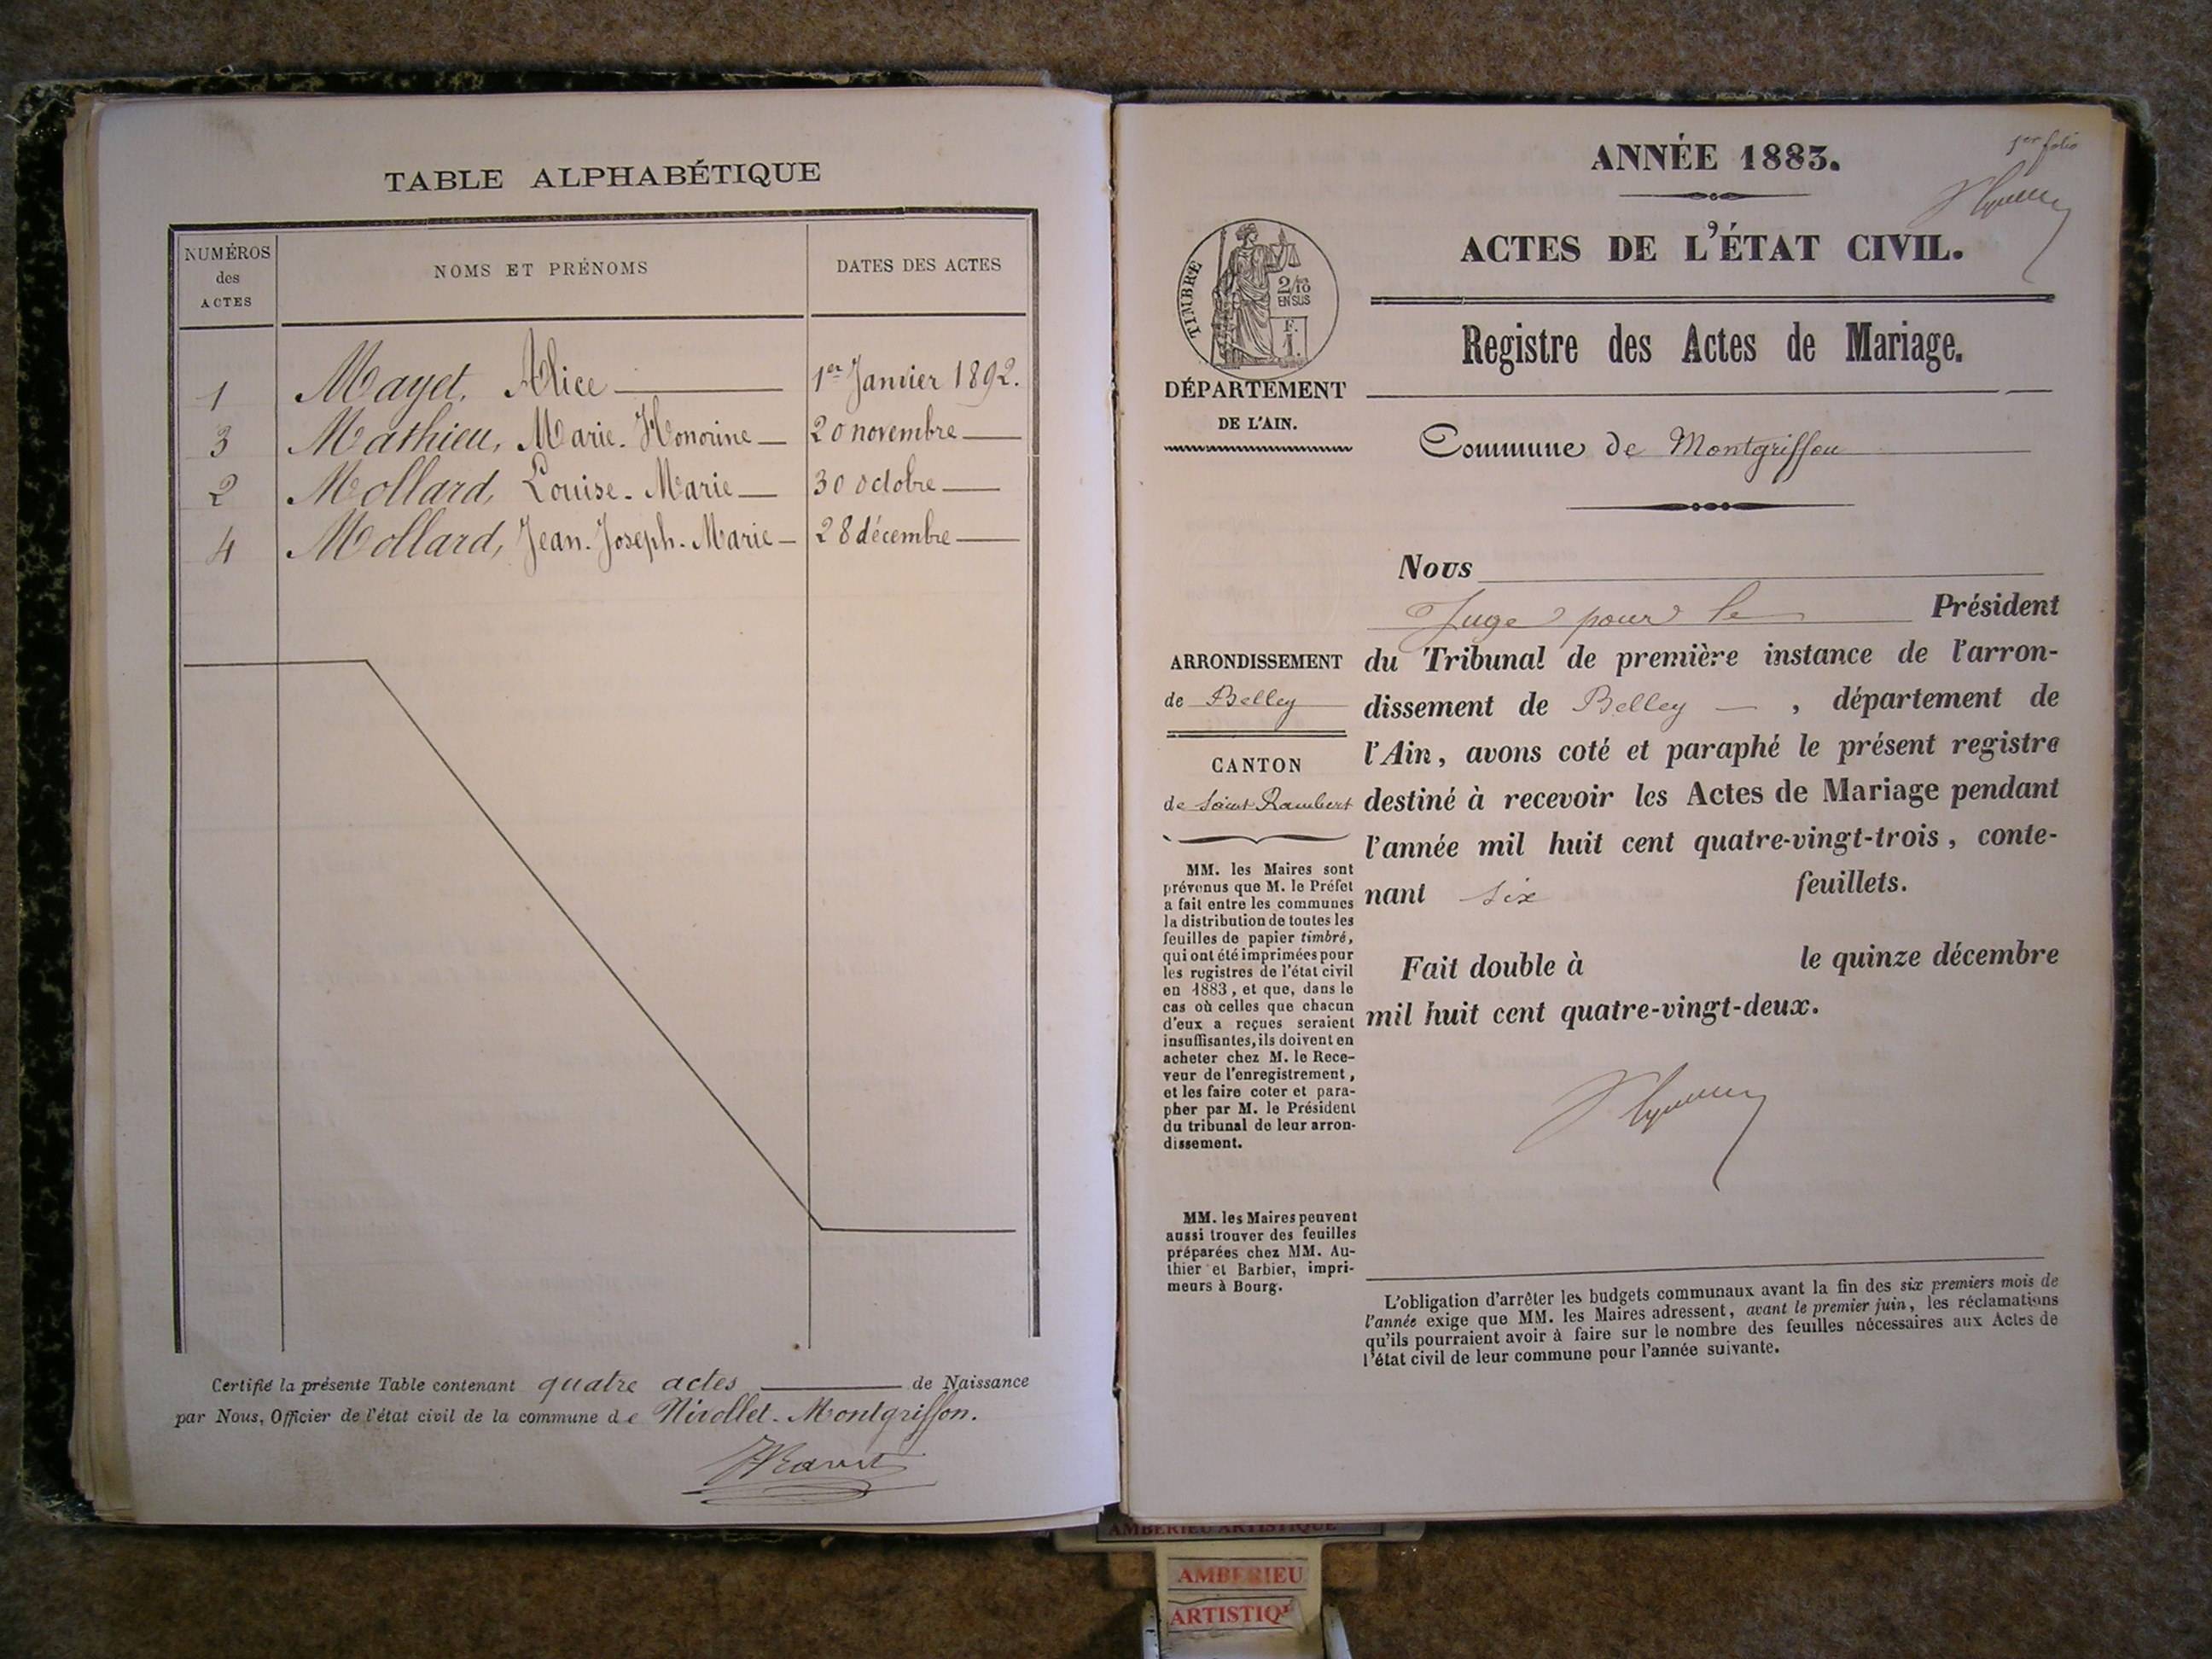 TABLE ALPHABÉTIQUE
NUMÉROS
des
ACTES
NOMS ET PRÉNOMS
DATES DES ACTES
1 Mayet, Alice 1er Janvier 1892.
3 Mathieu, Marie-Honorine 20 novembre
2 Mollard, Louise-Marie 30 octobre
4 Mollard, Jean-Joseph-Marie 28 décembre
Certifié la présente Table contenant quatre actes de Naissance
par Nous, Officier de l'état civil de la commune de Nivollet-Montgriffon.
1er folio
ANNÉE 1883.
ACTES DE L'ÉTAT CIVIL.
TIMBRE
2/10
EN SUS
F.
1.
Registre des Actes de Mariage.
DÉPARTEMENT
DE L'AIN.
Commune de Montgriffon
ARRONDISSEMENT
de Belley
CANTON
de Saint Rambert
MM. les Maires sont
prévenus que M. le Préfet
a fait entre les communes
la distribution de toutes les
feuilles de papier timbré,
qui ont été imprimées pour
les registres de l'état civil
en 1883, et que, dans le
cas où celles que chacun
d'eux a reçues seraient
insuffisantes, ils doivent en
acheter chez M. le Rece-
veur de l'enregistrement,
et les faire coter et para-
pher par M. le Président
du tribunal de leur arron-
dissement.
MM. les Maires peuvent
aussi trouver des feuilles
préparées chez MM. Au-
thier et Barbier, impri-
meurs à Bourg.
Nous
Juge pour le Président
du Tribunal de première instance de l'arron-
dissement de Belley, département de
l'Ain, avons coté et paraphé le présent registre
destiné à recevoir les Actes de Mariage pendant
l'année mil huit cent quatre-vingt-trois, conte-
nant six feuillets.
Fait double à le quinze décembre
mil huit cent quatre-vingt-deux.
L'obligation d'arrêter les budgets communaux avant la fin des six premiers mois de
l'année exige que MM. les Maires adressent, avant le premier juin, les réclamations
qu'ils pourraient avoir à faire sur le nombre des feuilles nécessaires aux Actes de
l'état civil de leur commune pour l'année suivante.
AMBERIEU ARTISTIQUE
AMBERIEU
ARTISTIQ